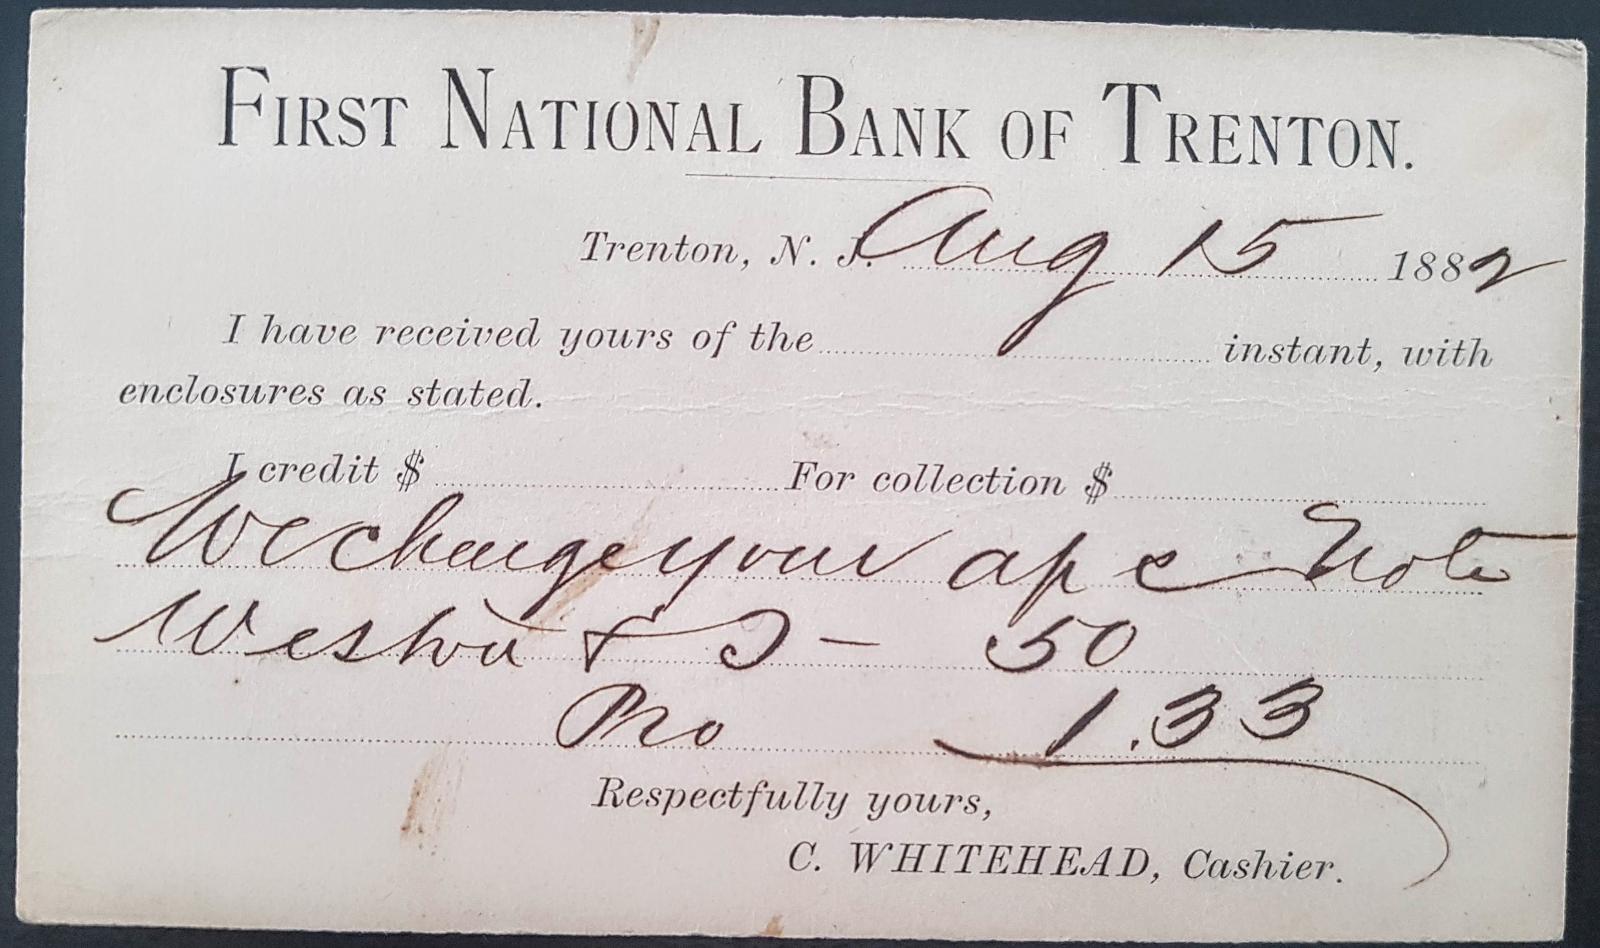 FIRST NATIONAL BANK OF TRENTON.
Trenton, N. J. Aug 15 1882
I have received yours of the instant, with
enclosures as stated.
I credit $ For collection $
We charge your a/c Note
& 50
Pro 1.33
Respectfully yours,
C. WHITEHEAD, Cashier.